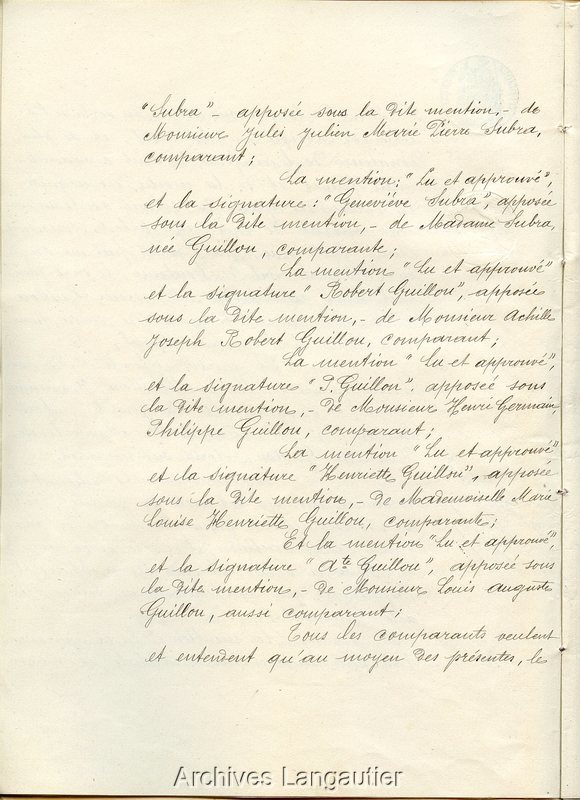 "Subra" - apposée sous la dite mention, - de
Monsieur Jules Julien Marie Pierre Subra,
comparant;
La mention: "Lu et approuvé",
et la signature: "Geneviève Subra", apposée
sous la dite mention, - de Madame Subra,
née Guillon, comparante;
La mention "Lu et approuvé"
et la signature "Robert Guillon", apposée
sous la dite mention, - de Monsieur Achille
Joseph Robert Guillon, comparant;
La mention "Lu et approuvé",
et la signature "P. Guillon", apposée sous
la dite mention, - de Monsieur Henri Germain
Philippe Guillon, comparant;
La mention "Lu et approuvé"
et la signature "Henriette Guillon", apposée
sous la dite mention, - de Mademoiselle Marie
Louise Henriette Guillon, comparante;
Et la mention "Lu et approuvé",
et la signature "Ate Guillon", apposée sous
la dite mention, - de Monsieur Louis Auguste
Guillon, aussi comparant;
Tous les comparants veulent
et entendent qu'au moyen des présentes, le
Archives Langautier